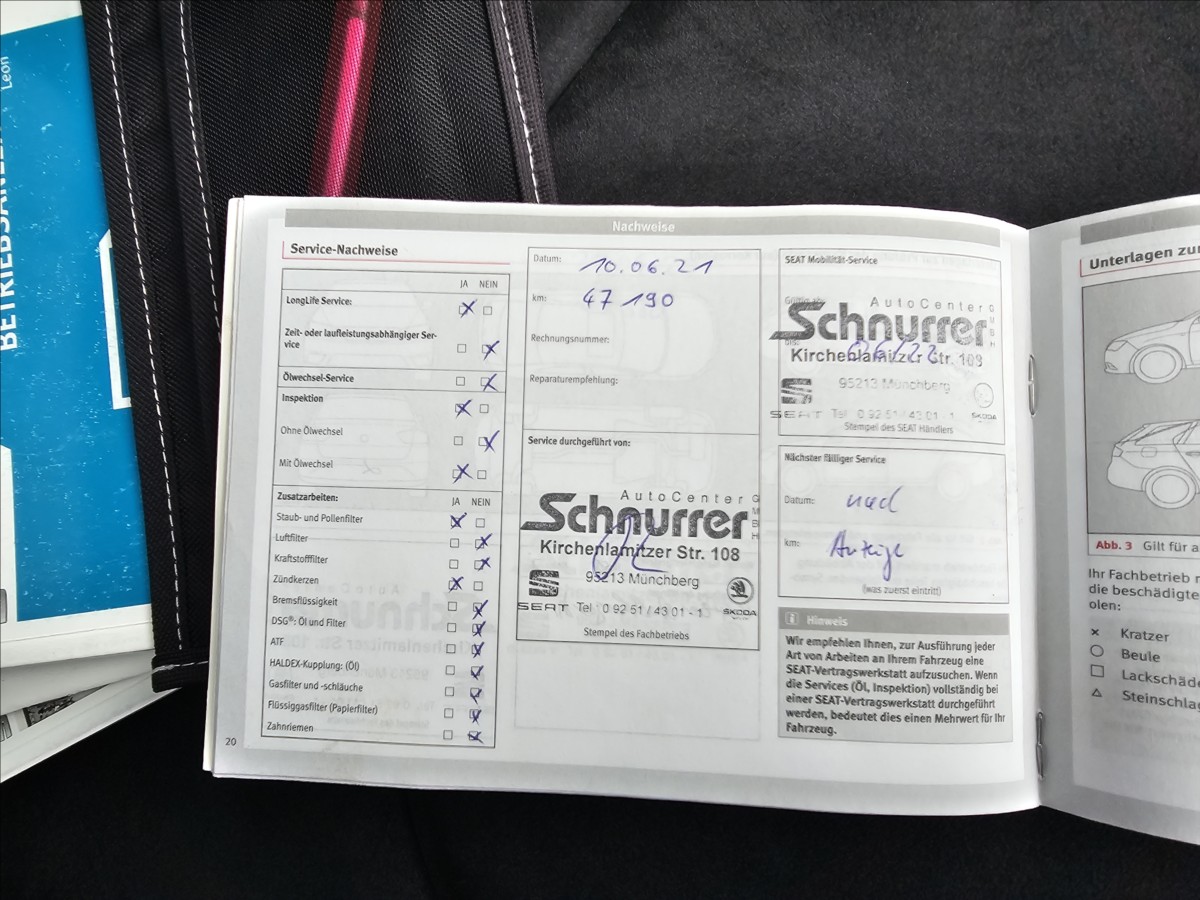 Leon
Nachweise
Service-Nachweise
JA NEIN
LongLife Service:
Zeit- oder laufleistungsabhängiger Ser-
vice
Ölwechsel-Service
Inspektion
Ohne Ölwechsel
Mit Ölwechsel
Zusatzarbeiten:
JA NEIN
Staub- und Pollenfilter
Luftfilter
Kraftstofffilter
Zündkerzen
Bremsflüssigkeit
DSG®: Öl und Filter
ATF
HALDEX-Kupplung: (Öl)
Gasfilter und -schläuche
Flüssiggasfilter (Papierfilter)
Zahnriemen
20
Datum: 10.06.21
km: 47 190
Rechnungsnummer:
Reparaturempfehlung:
Service durchgeführt von:
AutoCenter GMBH
Schnurrer
Kirchenlamitzer Str. 108
95213 Münchberg
SEAT Tel 0 92 51 / 43 01 - 1 SKODA
Stempel des Fachbetriebs
SEAT Mobilität-Service
Gültig ab:
AutoCenter GMBH
Schnurrer
06/22
Kirchenlamitzer Str. 108
95213 Münchberg
SEAT Tel 0 92 51 / 43 01 - 1 SKODA
Stempel des SEAT Händlers
Nächster fälliger Service
Datum: nach
km: Anzeige
(was zuerst eintritt)
i Hinweis
Wir empfehlen Ihnen, zur Ausführung jeder
Art von Arbeiten an Ihrem Fahrzeug eine
SEAT-Vertragswerkstatt aufzusuchen. Wenn
die Services (Öl, Inspektion) vollständig bei
einer SEAT-Vertragswerkstatt durchgeführt
werden, bedeutet dies einen Mehrwert für Ihr
Fahrzeug.
Unterlagen zur
Abb. 3 Gilt für a
Ihr Fachbetrieb
die beschädigte
olen:
Kratzer
Beule
Lackschäde
Steinschlag